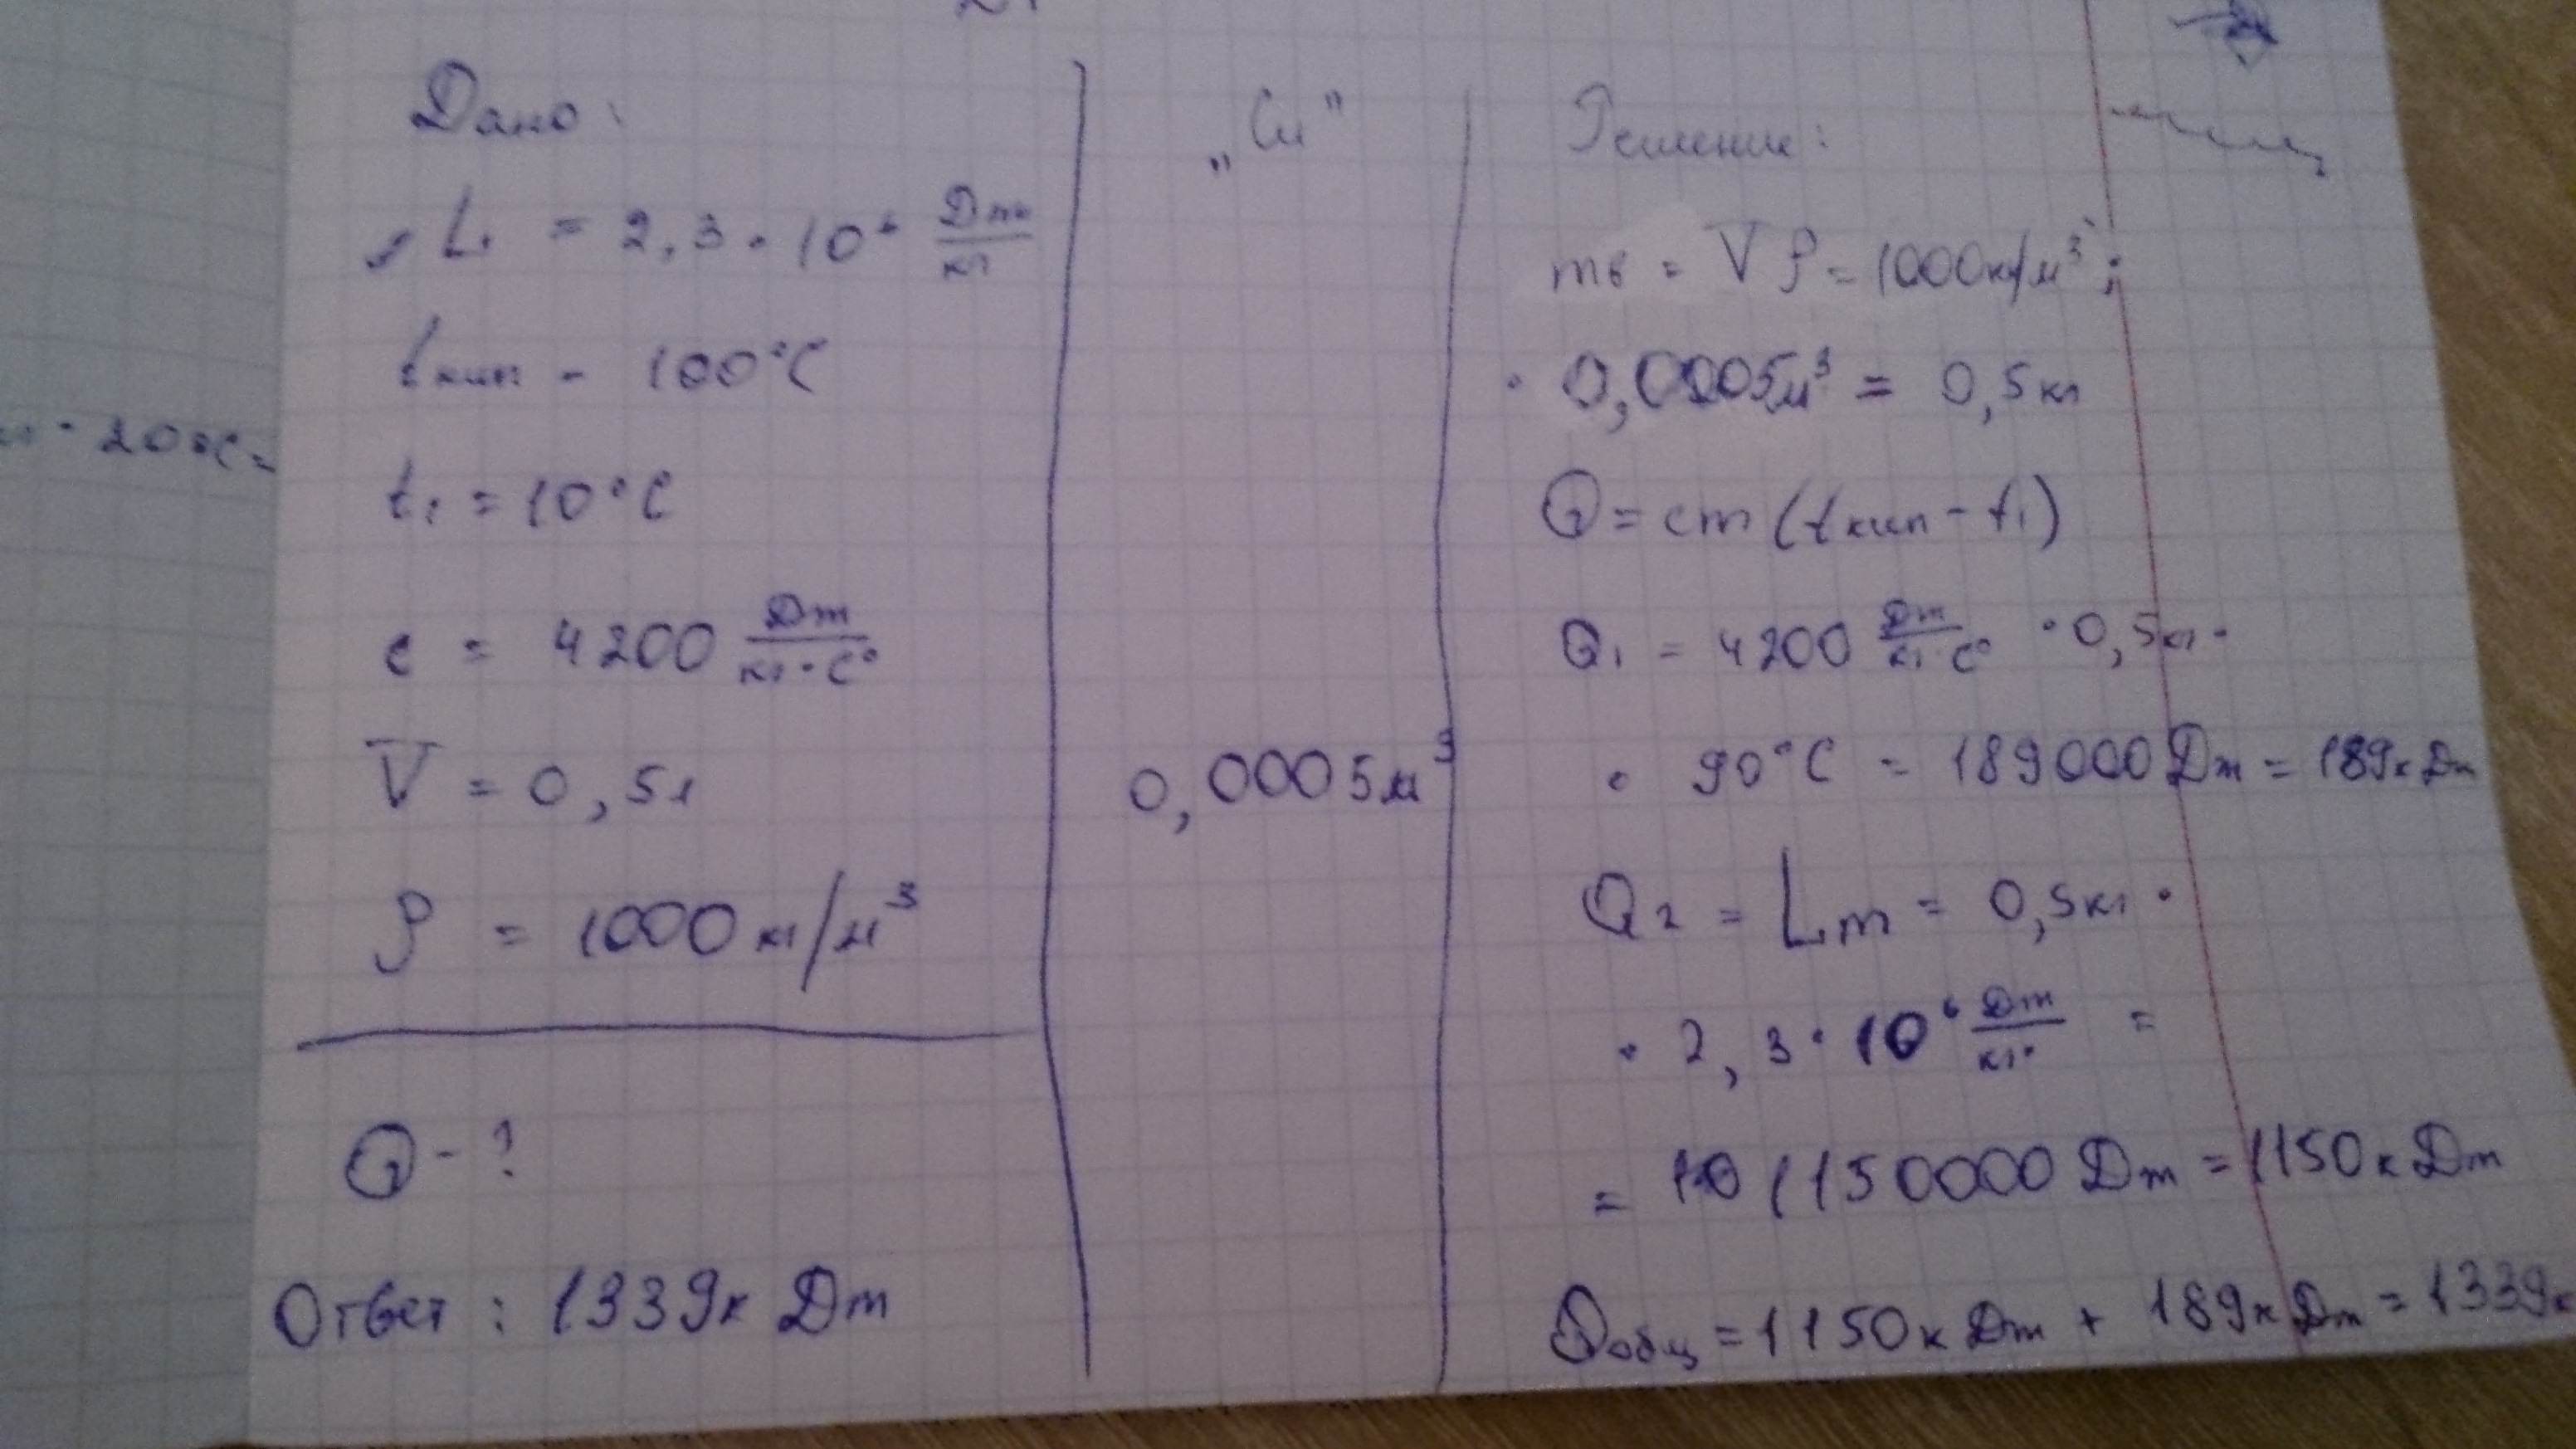 Дано:
L = 2,3 · 10⁶ Дж/кг
tкип - 100°C
t₁ = 10°C
c = 4200 Дж/кг·C°
V = 0,5л
ρ = 1000 кг/м³
Q - ?
Ответ: 1339к Дж
„Си"
0,0005м³
Решение:
mв = Vρ = 1000кг/м³ ·
· 0,0005м³ = 0,5кг
Q = cm (tкип - t₁)
Q₁ = 4200 Дж/кг·C° · 0,5кг ·
· 90°C = 189000 Дж = 189к Дж
Q₂ = Lm = 0,5кг ·
· 2,3 · 10⁶ Дж/кг =
= 1150000 Дж = 1150к Дж
Qобщ = 1150к Дж + 189к Дж = 1339к
· 20°C =